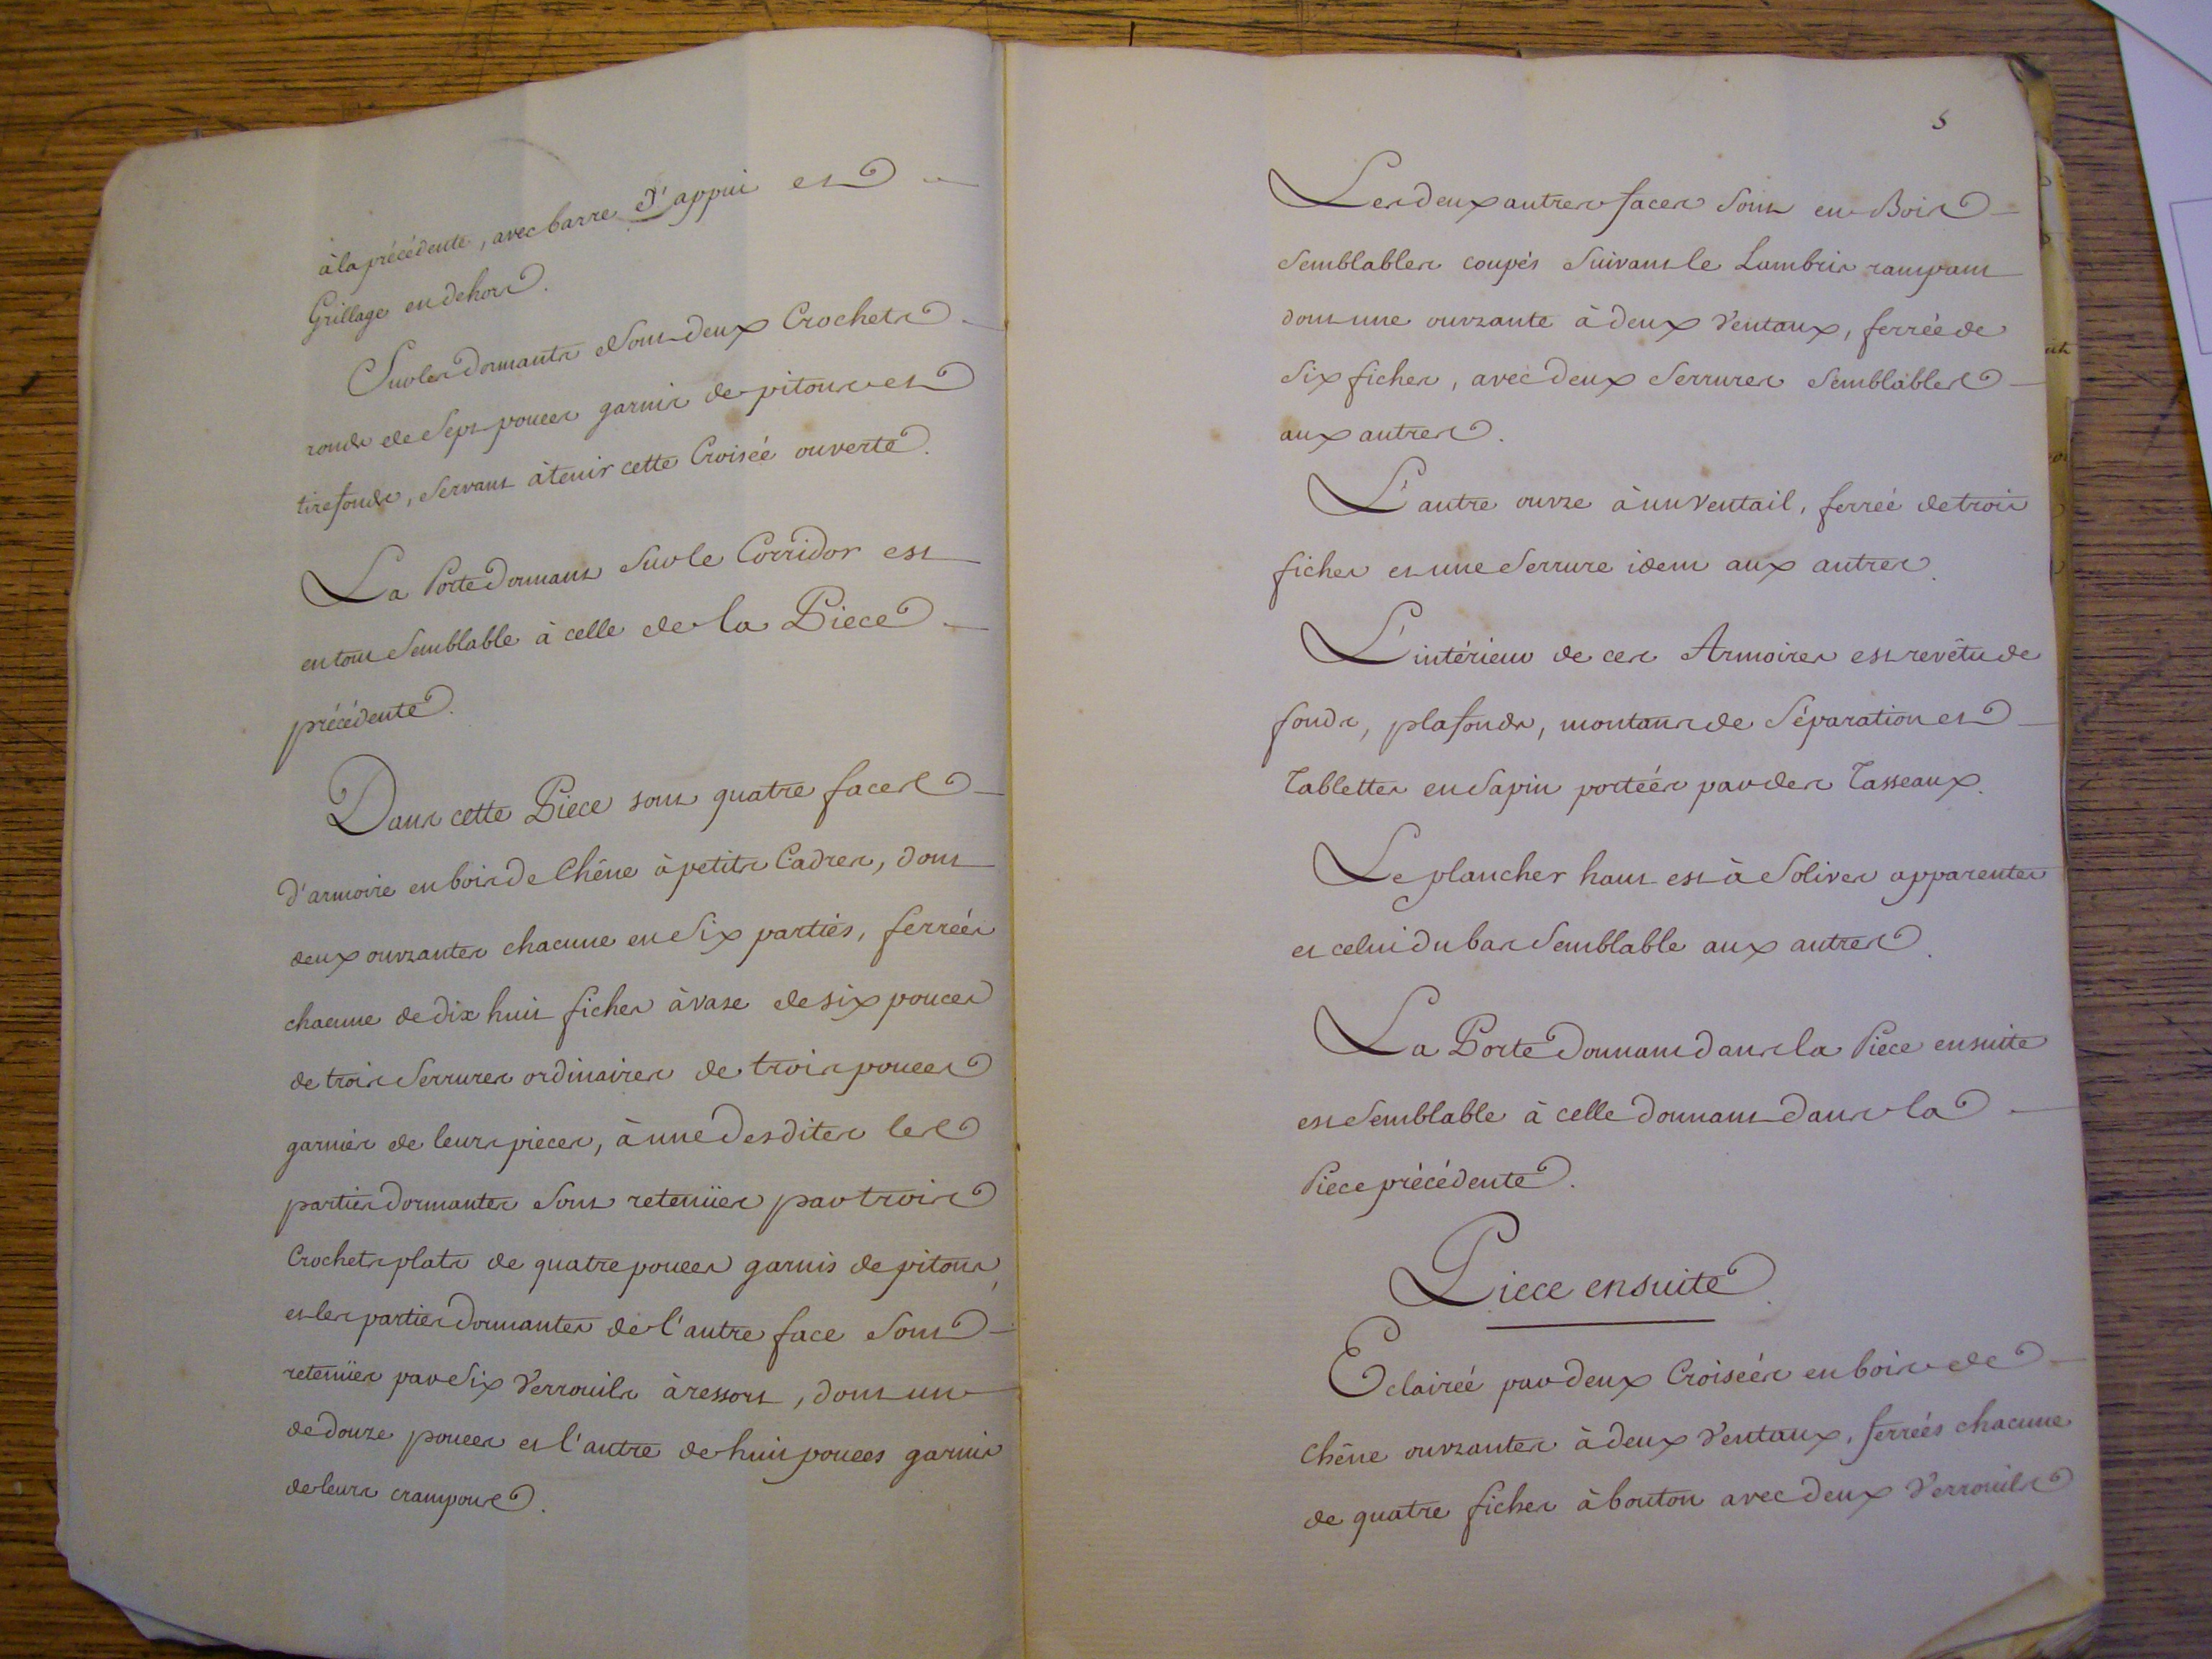 à la précédente, avec barre d'appui et
Grillage en dehors.
Sur les dormants sont deux Crochets
ronds de sept pouces garnis de pitons et
tirefonds, servant à tenir cette Croisée ouverte.
La Porte donnant sur le Corridor est
en tout semblable à celle de la Piece
précédente.
Dans cette Piece sont quatre faces
d'armoire en bois de Chêne à petits Cadres, dont
deux ouvrantes chacune en six parties, ferrées
chacune de dix huit fiches à vase de six pouces
de trois serrures ordinaires de trois pouces
garnies de leurs pieces, à une desdites les
parties dormantes sont retenües par trois
Crochets plats de quatre pouces garnis de pitons,
et les parties dormantes de l'autre face sont
retenües par six Verrouils à ressort, dont un
de douze pouces et l'autre de huit pouces garnis
de leurs crampons.
5
Les deux autres faces sont en Bois
semblables coupés suivant le Lambris rampant
dont une ouvrante à deux Ventaux, ferrée de
six fiches, avec deux serrures semblables
aux autres.
L'autre ouvre à un Ventail, ferrée de trois
fiches et une serrure idem aux autres.
L'intérieur de ces Armoires est revêtu de
fonds, plafonds, montans de séparation et
Tablettes en sapin portées par des Tasseaux.
Le plancher haut est à solives apparentes
et celui du bas semblable aux autres.
La Porte donnant dans la Piece ensuite
est semblable à celle donnant dans la
Piece précédente.
Piece ensuite.
Eclairée par deux Croisées en bois de
Chêne ouvrantes à deux Ventaux, ferrées chacune
de quatre fiches à bouton avec deux Verrouils